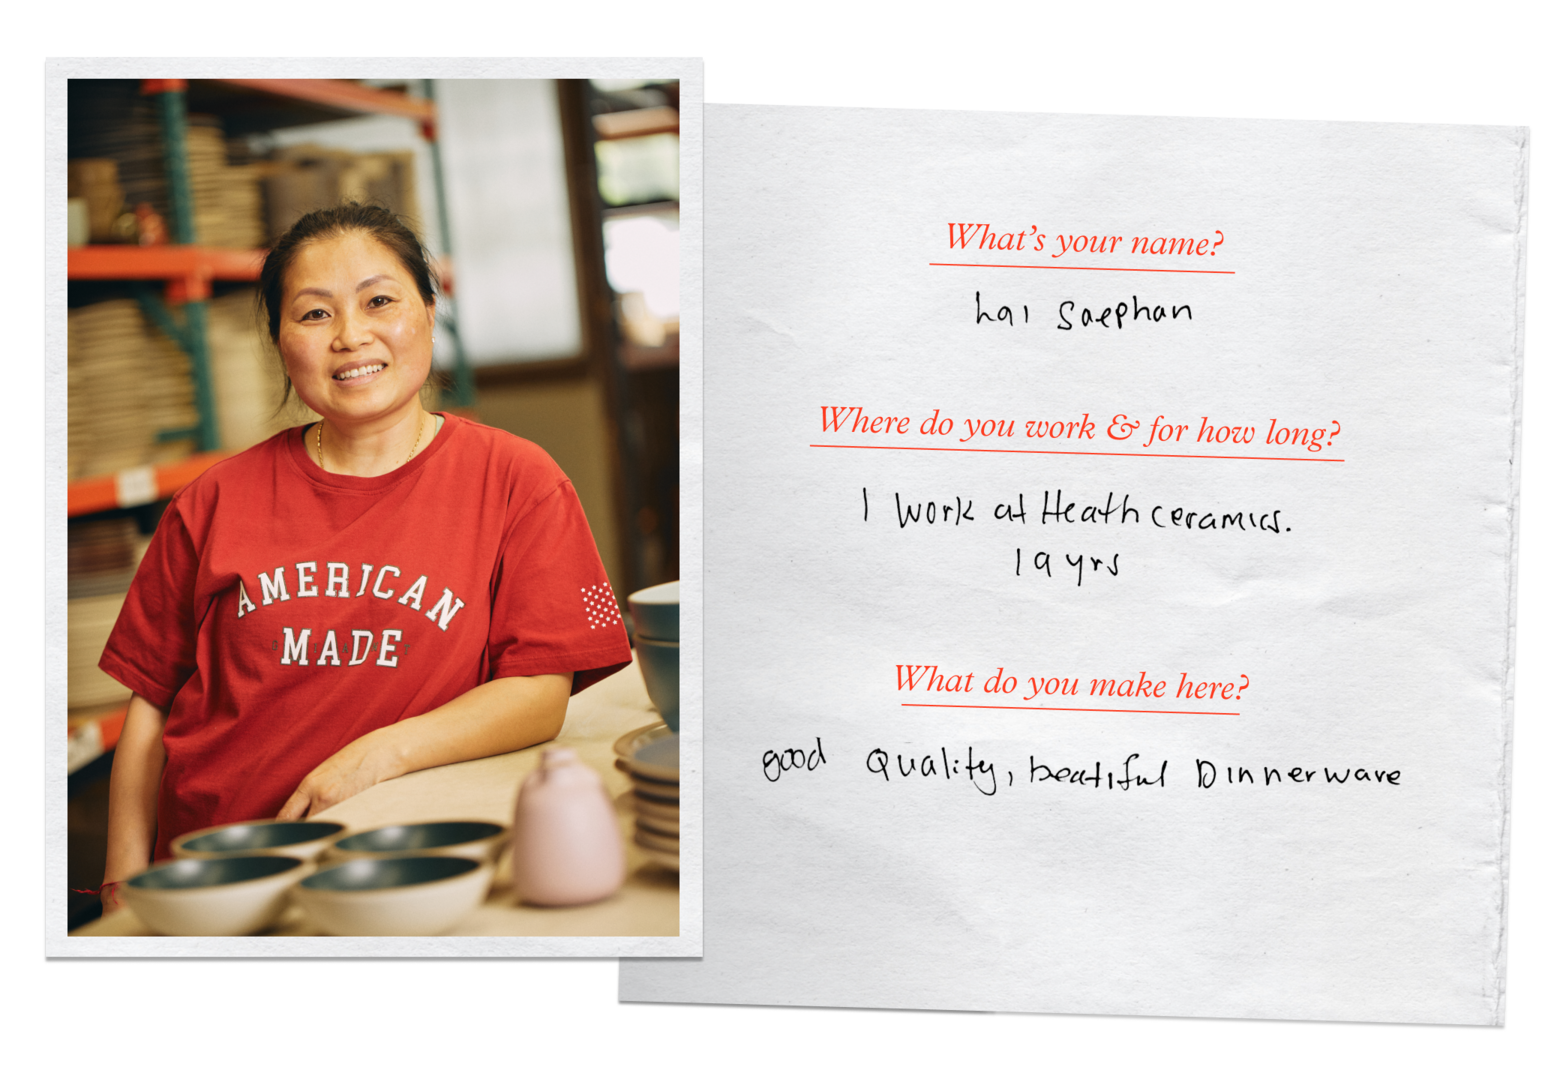 AMERICAN
MADE
What's your name?
Lai Saephan
Where do you work & for how long?
I work at Heath ceramics.
19 yrs
What do you make here?
good Quality, beatiful Dinnerware